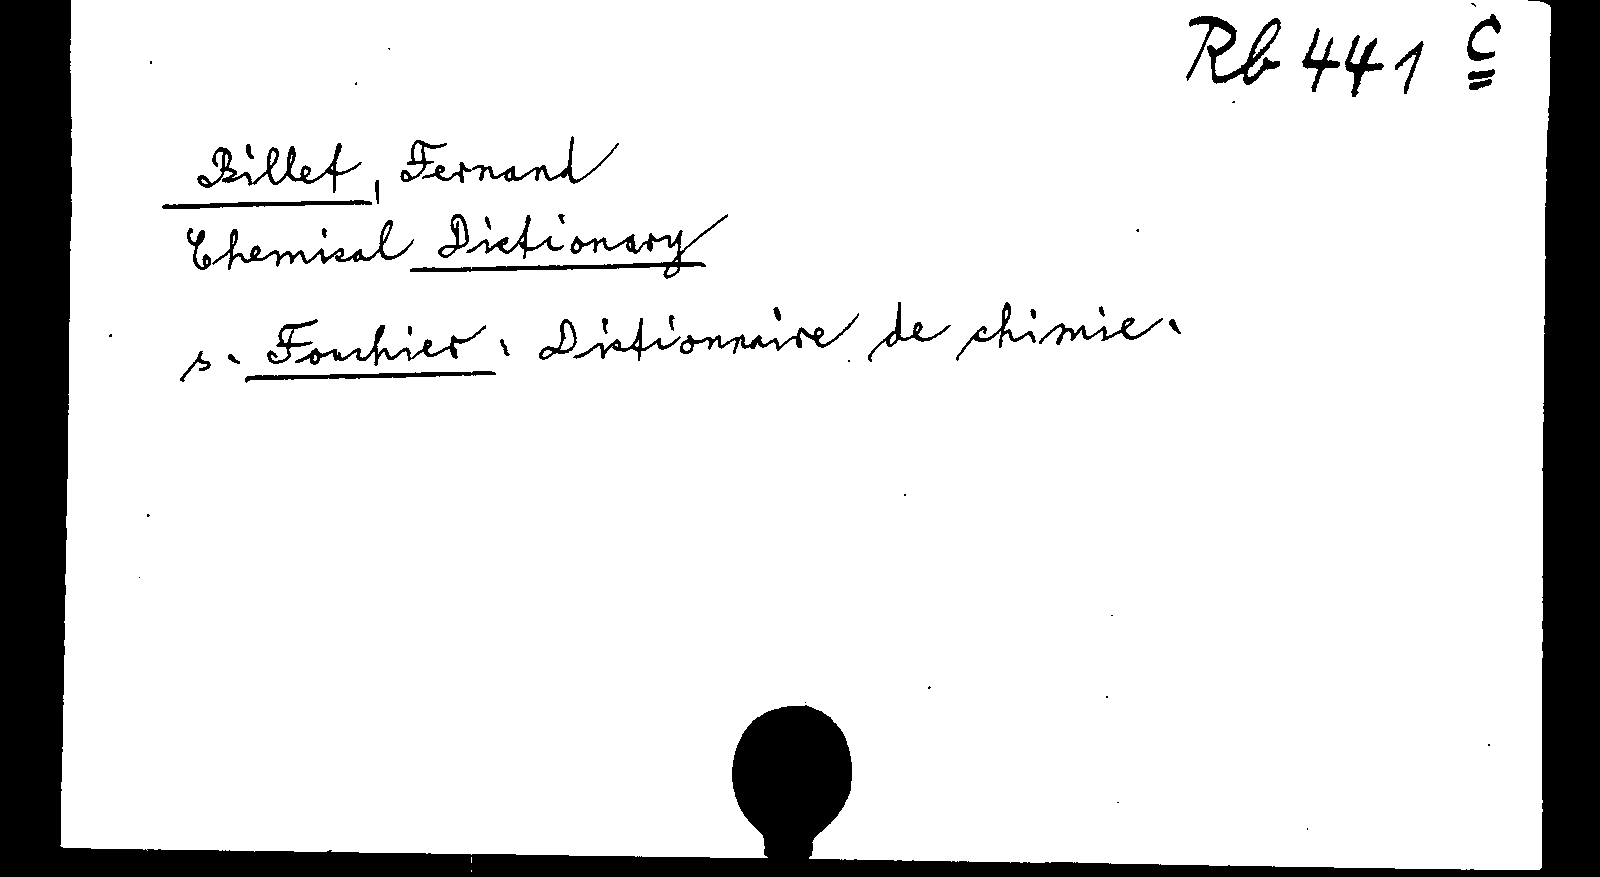 Rb 441 c
Billet, Fernand
Chemical Dictionary
s. Fouchier. Dictionnaire de chimie.